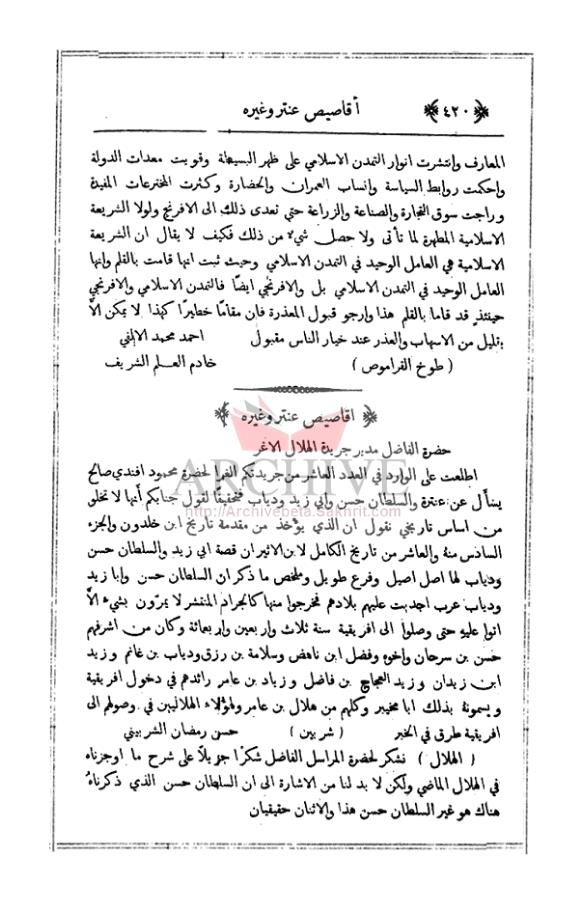 ﴿ ٤٢٠ ﴾ أقاصيص عنتر وغيره
المعارف وانتشرت انوار التمدن الاسلامي على ظهر البسيطة وقويت معدات الدولة
واحكمت روابط السياسة وانساب العمران والحضارة وكثرت المخترعات المفيدة
وراجت سوق التجارة والصناعة والزراعة حتى تعدى ذلك الى الافرنج ولولا الشريعة
الاسلامية المطهرة لما تأتى ولا حصل شيء من ذلك فكيف لا يقال ان الشريعة
الاسلامية هي العامل الوحيد في التمدن الاسلامي وحيث ثبت انها قامت بالقلم وانها
العامل الوحيد في التمدن الاسلامي بل والافرنجي ايضًا فالتمدن الاسلامي والافرنجي
حينئذٍ قد قاما بالقلم هذا وارجو قبول المعذرة فان مقامًا خطيرًا كهذا لا يمكن الاَّ
بقليل من الاسهاب والعذر عند خيار الناس مقبول احمد محمد الالفي
( طوخ القراموص ) خادم العلم الشريف
﴿ اقاصيص عنتر وغيره ﴾
حضرة الفاضل مدير جريدة الهلال الاغر
اطلعت على الوارد في العدد العاشر من جريدتكم الغرا لحضرة محمود افندي صالح
يسأل عن عنترة والسلطان حسن وابي زيد ودياب فتحقيقًا لقول جنابكم أنها لا تخلو
من اساس تاريخي نقول ان الذي يؤخذ من مقدمة تاريخ ابن خلدون والجزء
السادس منهُ والعاشر من تاريخ الكامل لابن الاثير ان قصة ابي زيد والسلطان حسن
ودياب لها اصل اصيل وفرع طويل وملخص ما ذكر ان السلطان حسن وابا زيد
ودياب عرب اجدبت عليهم بلادهم فخرجوا منها كالجراد المنتشر لا يمرّون بشيء الاَّ
اتوا عليهِ حتى وصلوا الى افريقية سنة ثلاث واربعين واربعمائة وكان من اشرفهم
حسن بن سرحان واخوه وفضل ابن ناهض وسلامة بن رزق ودياب بن غانم وزيد
ابن زيدان وزيد العجاج بن فاضل وزياد بن عامر رائدهم في دخول افريقية
ويسمونهُ بذلك ابا مخيبر وكلهم من هلال بن عامر ولهؤلاء الهلاليين في وصولهم الى
افريقية طرق في الخبر ( شربين ) حسن رمضان الشربيني
( الهلال ) نشكر لحضرة المراسل الفاضل شكرًا جزيلاً على شرح ما اوجزناه
في الهلال الماضي ولكن لا بد لنا من الاشارة الى ان السلطان حسن الذي ذكرناهُ
هناك هو غير السلطان حسن هذا والاثنان حقيقيان
ARCHIVE
http://Archivebeta.Sakhrit.com